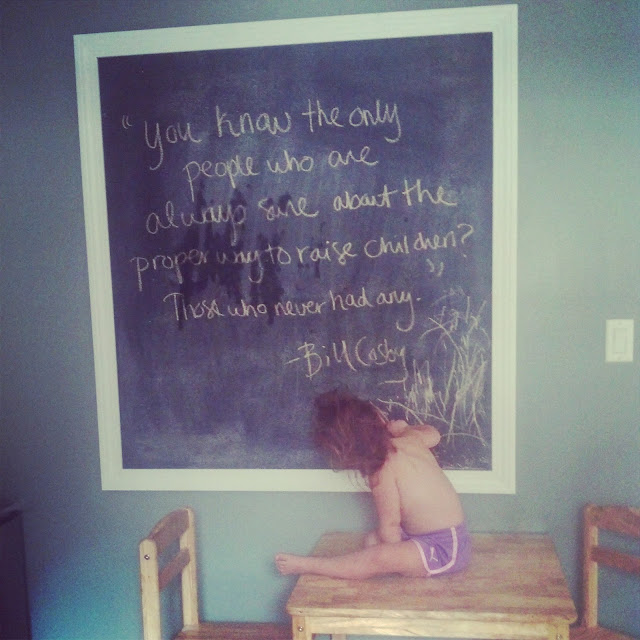 "You know the only
people who are
always sure about the
proper way to raise children?
Those who never had any."
-Bill Cosby